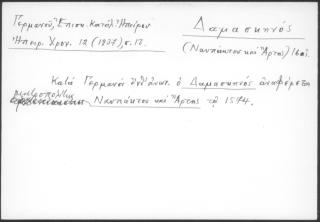 Γερμανοῦ, Ἐπισκ. Κατάλ. Ἠπείρου
Ἠπειρ. Χρον. 12 (1937), σ. 12.
Δαμασκηνός
(Ναυπάκτου καὶ Ἄρτης) 16 αἰ.
Κατὰ Γερμανὸν ὁ Δαμασκηνὸς ἀναφέρεται
μητροπολίτης
Ναυπάκτου καὶ Ἄρτης τῷ 1574.